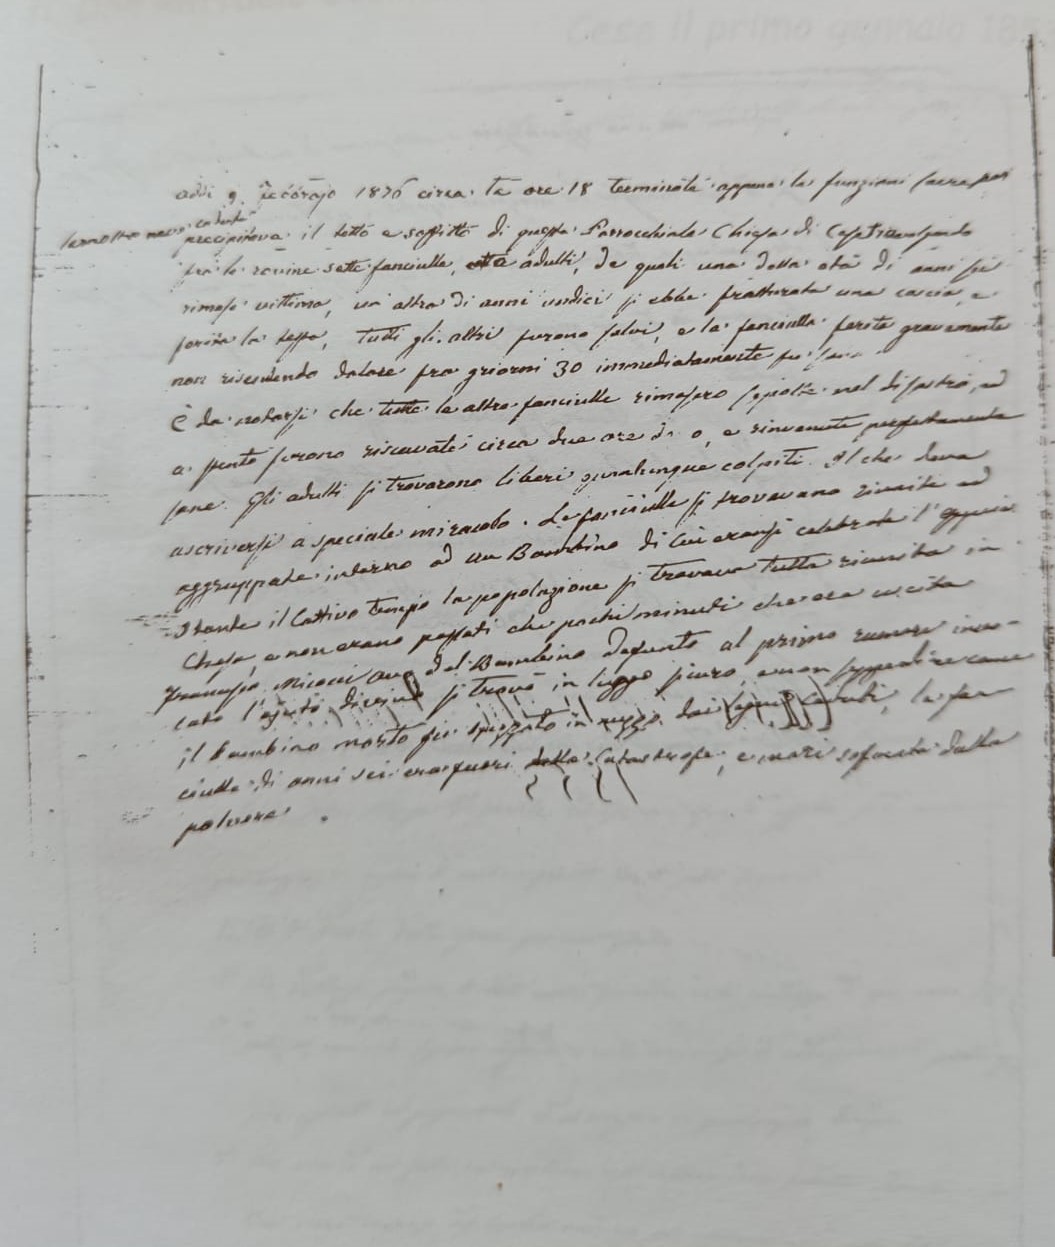 Cesa il primo gennaio 18
addi 9 Febbrajo 1876 circa le ore 18 terminate appena le funzioni sacre per
la molta neve caduta
precipitava il tetto e soffitto di questa Parrocchiale Chiesa di
fra le rovine sette fanciulle, otto adulti, de quali una della età di anni sei
rimase vittima, un altra di anni undici si ebbe fratturata una coscia, e
ferita la testa, Tutti gli altri furono salvi, e la fanciulla ferita gravemente
non risentendo dolore fra giorni 30 immediatamente fu sana
È da notarsi che tutte le altre fanciulle rimasero sepolte nel disastro, ed
a stento furono riscavate circa due ore d o, e rinvenute perfettamente
sane. Gli adulti si trovarono liberi qualunque colpiti. Il che deve
ascriversi a speciale miracolo. Le fanciulle si trovavano riunite ed
aggruppate intorno ad un Bambino di cui eransi celebrate l'
Stante il Cattivo tempo la popolazione si trovava tutta riunita in
Chiesa, e non erano passati che pochi minuti che era uscita
del Bambino defunto al primo rumore invo-
cato l'ajuto divino si trovò in luogo sicuro, e non
il bambino morto fu spezzato in mezzo dai legni caduti, la fan
ciulla di anni sei era fuori della Catastrofe, e morì soffocata dalla
polvere